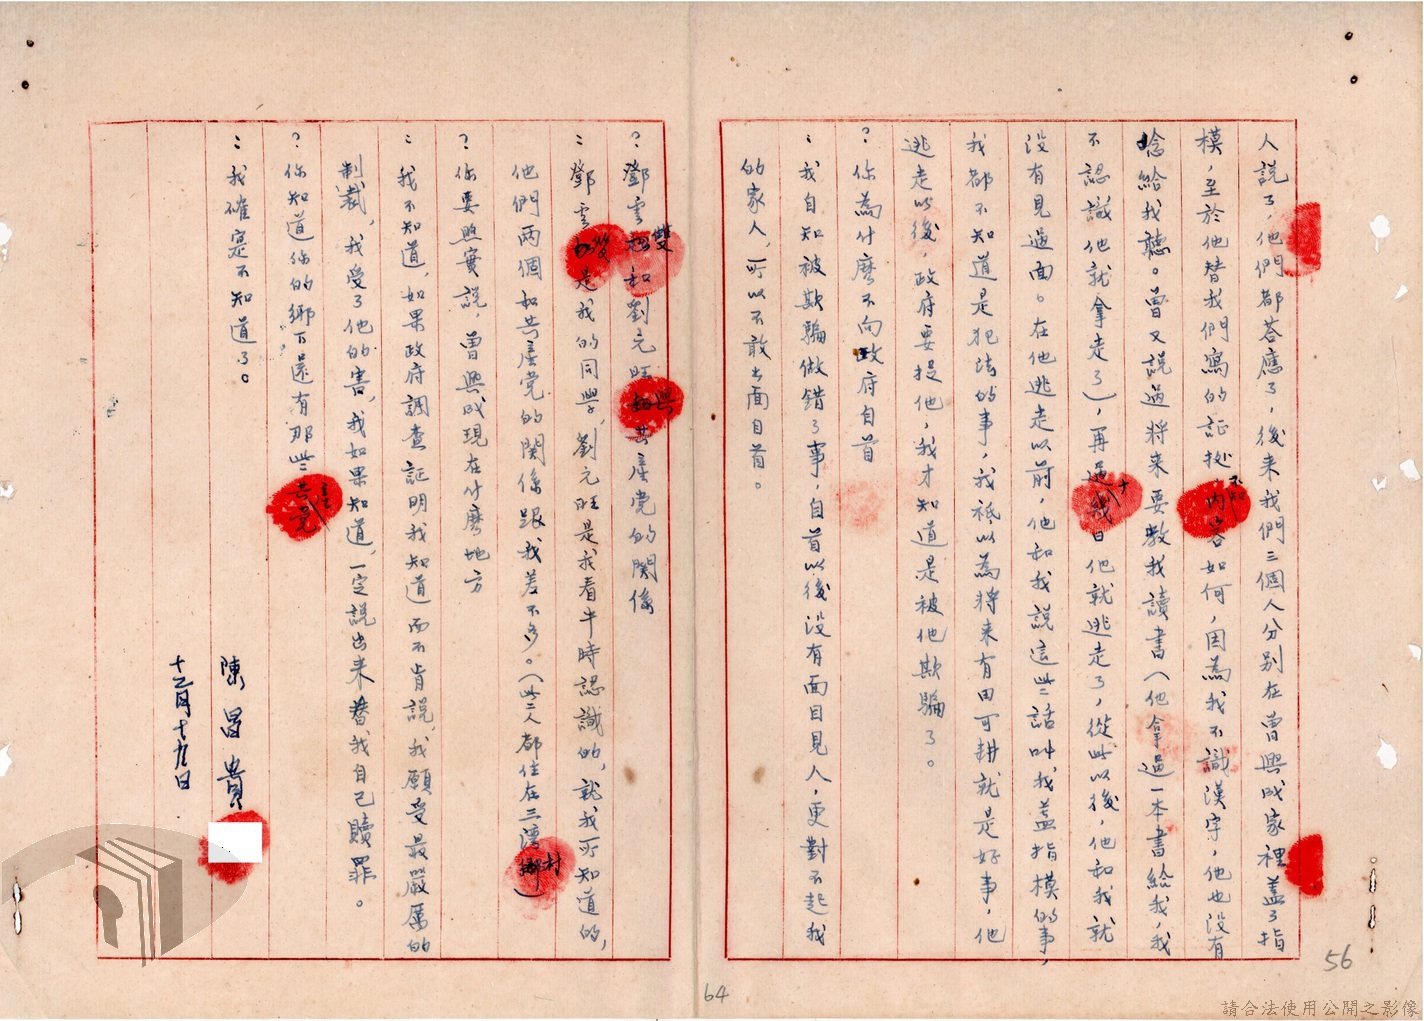 人說了，他們都答應了，後来我們三個人分别在曾興成家裡盖了指
模，至於他替我們寫的証拠，内容如何，不知因為我不識漢字，他也没有
唸給我聽。曾又說過将来要教我讀書（他拿過一本書給我，我
不認識他就拿走了），再過十幾日他就逃走了，從此以後，他和我就
没有見過面。在他逃走以前，他和我說這些話叫我盖指模的事，
我都不知道是犯法的事，我祗以為将来有田可耕就是好事，他
逃走以後，政府要捉他，我才知道是被他欺騙了。
？你為什麽不向政府自首
：我自知被欺騙做錯了事，自首以後没有面目見人，更對不起我
的家人，所以不敢出面自首。
？鄧雲雙和劉元旺與共產党的関係
：鄧雲雙是我的同學，劉元旺是我看牛時認識的，就我所知道的，
他們两個和共產党的関係跟我差不多。（此二人都住在三灣村）
？你要照實説，曾興成現在什麽地方
：我不知道，如果政府調查証明我知道而不肯説，我願受最嚴厲的
制裁，我受了他的害，我如果知道，一定説出来替我自己贖罪。
？你知道你的鄉下還有那些共產党
：我確寔不知道了。
陳昌貴
十二月十九日
56
64
請合法使用公開之影像